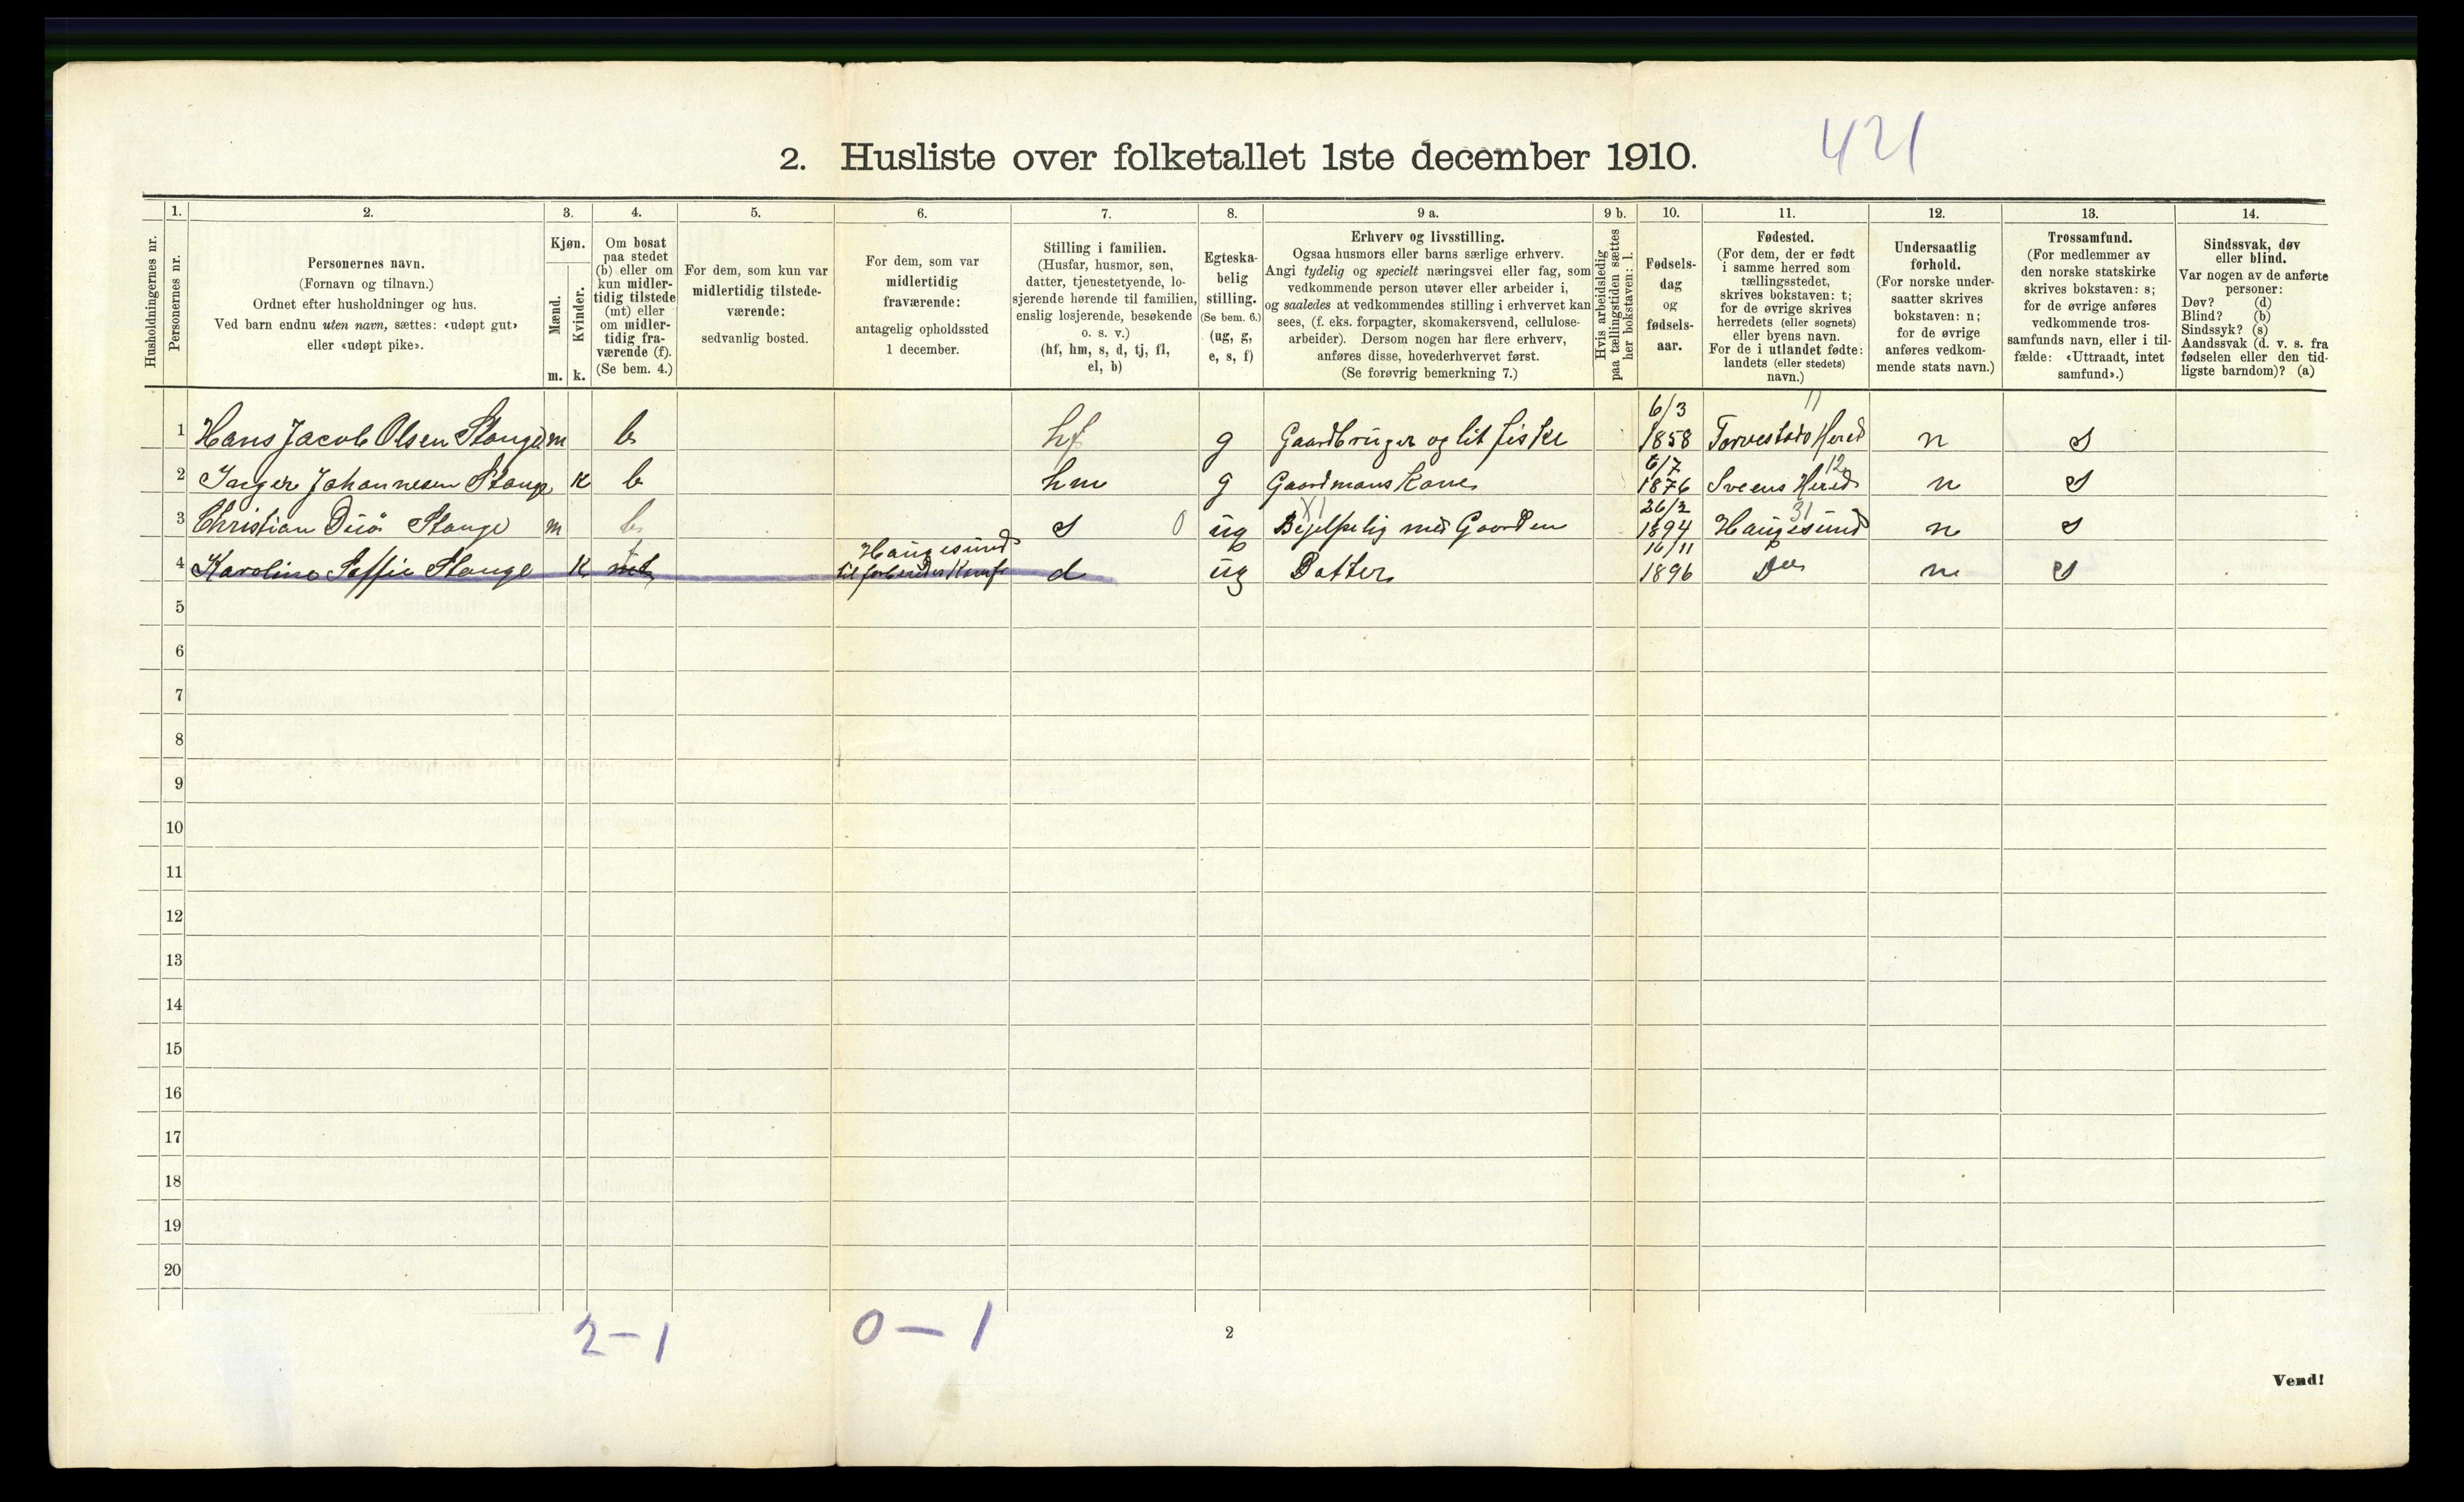 421
2. Husliste over folketallet 1ste december 1910.
Husholdningernes nr.
1.
Personernes nr.
2.
Personernes navn.
(Fornavn og tilnavn.)
Ordnet efter husholdninger og hus.
Ved barn endnu uten navn, sættes: «udøpt gut»
eller «udøpt pike».
3.
Kjøn.
Mænd.
Kvinder.
m. k.
4.
Om bosat
paa stedet
(b) eller om
kun midler-
tidig tilstede
(mt) eller
om midler-
tidig fra-
værende (f).
(Se bem. 4.)
5.
For dem, som kun var
midlertidig tilstede-
værende:
sedvanlig bosted.
6.
For dem, som var
midlertidig
fraværende:
antagelig opholdssted
1 december.
7.
Stilling i familien.
(Husfar, husmor, søn,
datter, tjenestetyende, lo-
sjerende hørende til familien,
enslig losjerende, besøkende
o. s. v.)
(hf, hm, s, d, tj, fl,
el, b)
8.
Egteska-
belig
stilling.
(Se bem. 6.)
(ug, g,
e, s, f)
9 a.
Erhverv og livsstilling.
Ogsaa husmors eller barns særlige erhverv.
Angi tydelig og specielt næringsvei eller fag, som
vedkommende person utøver eller arbeider i,
og saaledes at vedkommendes stilling i erhvervet kan
sees, (f. eks. forpagter, skomakersvend, cellulose-
arbeider). Dersom nogen har flere erhverv,
anføres disse, hovederhvervet først.
(Se forøvrig bemerkning 7.)
9 b.
Hvis arbeidsledig
paa tællingstiden sættes
her bokstaven: l.
10.
Fødsels-
dag
og
fødsels-
aar.
11.
Fødested.
(For dem, der er født
i samme herred som
tællingsstedet,
skrives bokstaven: t;
for de øvrige skrives
herredets (eller sognets)
eller byens navn.
For de i utlandet fødte:
landets (eller stedets)
navn.)
12.
Undersaatlig
forhold.
(For norske under-
saatter skrives
bokstaven: n;
for de øvrige
anføres vedkom-
mende stats navn.)
13.
Trossamfund.
(For medlemmer av
den norske statskirke
skrives bokstaven: s;
for de øvrige anføres
vedkommende tros-
samfunds navn, eller i til-
fælde: «Uttraadt, intet
samfund».)
14.
Sindssvak, døv
eller blind.
Var nogen av de anførte
personer:
Døv? (d)
Blind? (b)
Sindssyk? (s)
Aandssvak (d. v. s. fra
fødselen eller den tid-
ligste barndom)? (a)
6/3 11
1 Hans Jacob Olsen Stange m b hf g Gaardbruger og lit fiske 1858 Torvestads Hered n s
6/7 12
2 Inger Johannesen Stange K b hm g Gaardmans Kone 1876 Sveens Hered n s
XI 26/2 31
3 Christian Duå Stange m b s 0 ug Bejelpelig med Gaarden 1894 Haugesund n s
f Haugesund 16/11
4 Karoline Soffie Stange K mt d ug Datter 1896 Do n s
5
6
7
8
9
10
11
12
13
14
15
16
17
18
19
20
2-1 0-1
2
Vend!